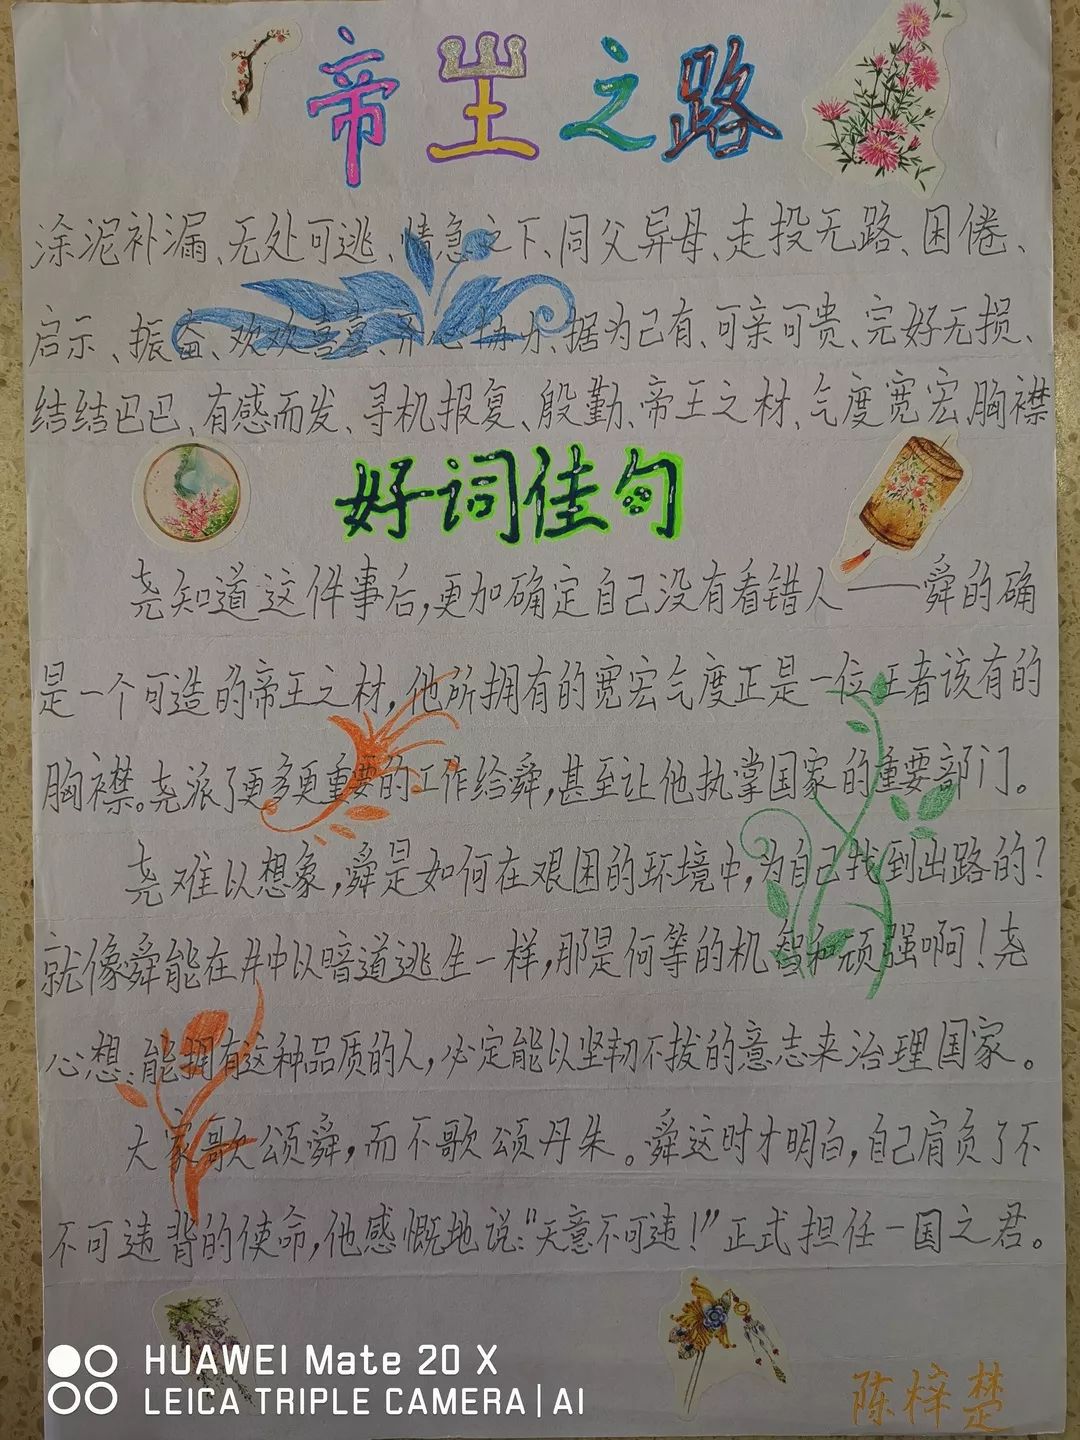 帝王之路
涂泥补漏、无处可逃、情急之下、同父异母、走投无路、困倦、
启示、振奋、欢欢喜喜、齐心协力、据为己有、可亲可贵、完好无损、
结结巴巴、有感而发、寻机报复、殷勤、帝王之材、气度宽宏、胸襟
好词佳句
尧知道这件事后,更加确定自己没有看错人——舜的确
是一个可造的帝王之材,他所拥有的宽宏气度正是一位王者该有的
胸襟。尧派了更多更重要的工作给舜,甚至让他执掌国家的重要部门。
尧难以想象,舜是如何在艰困的环境中,为自己找到出路的?
就像舜能在井中以暗道逃生一样,那是何等的机智和顽强啊!尧
心想:能拥有这种品质的人,必定能以坚韧不拔的意志来治理国家。
大家歌颂舜,而不歌颂丹朱。舜这时才明白,自己肩负了不
不可违背的使命,他感慨地说:“天意不可违!”正式担任一国之君。
HUAWEI Mate 20 X
LEICA TRIPLE CAMERA | AI
陈梓楚